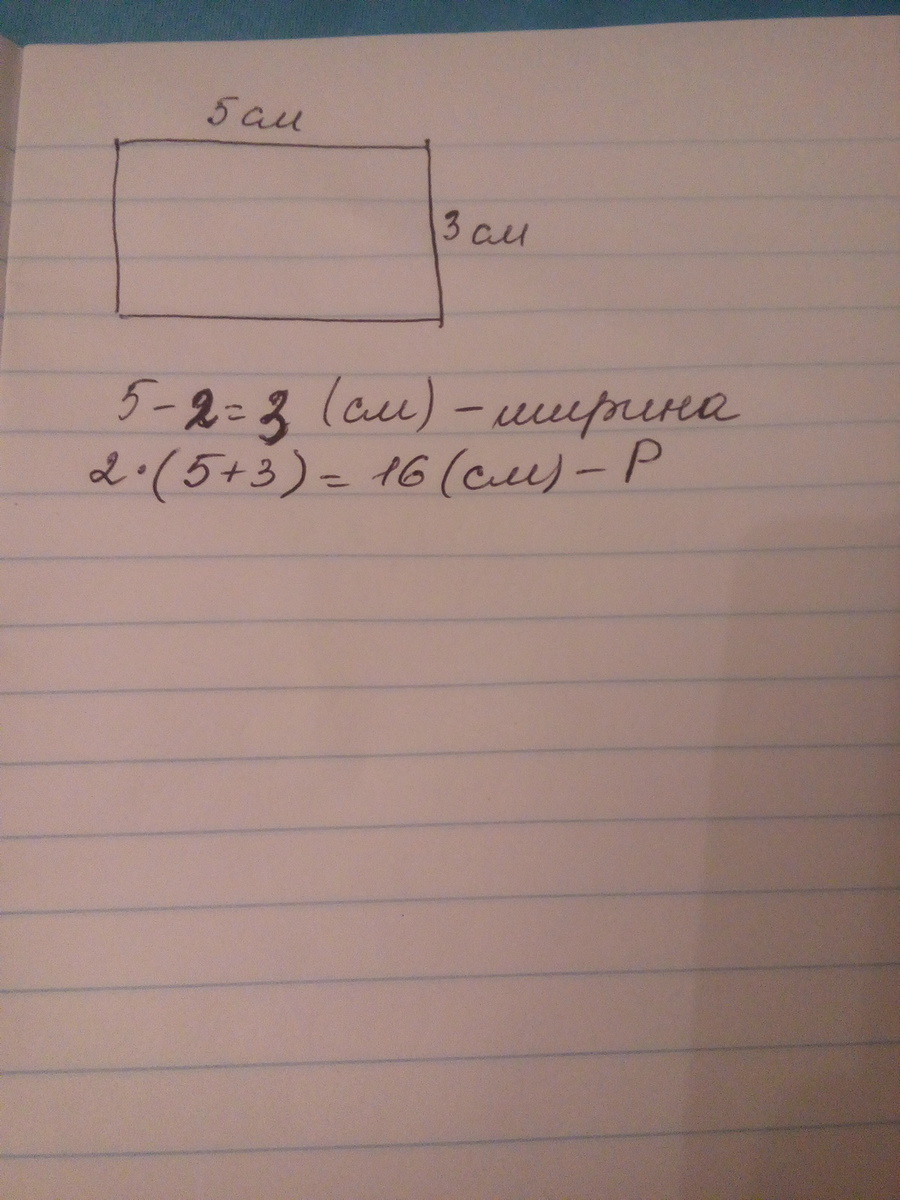 5 см
3 см
5-2=3 (см) - ширина
2·(5+3) = 16 (см) - P